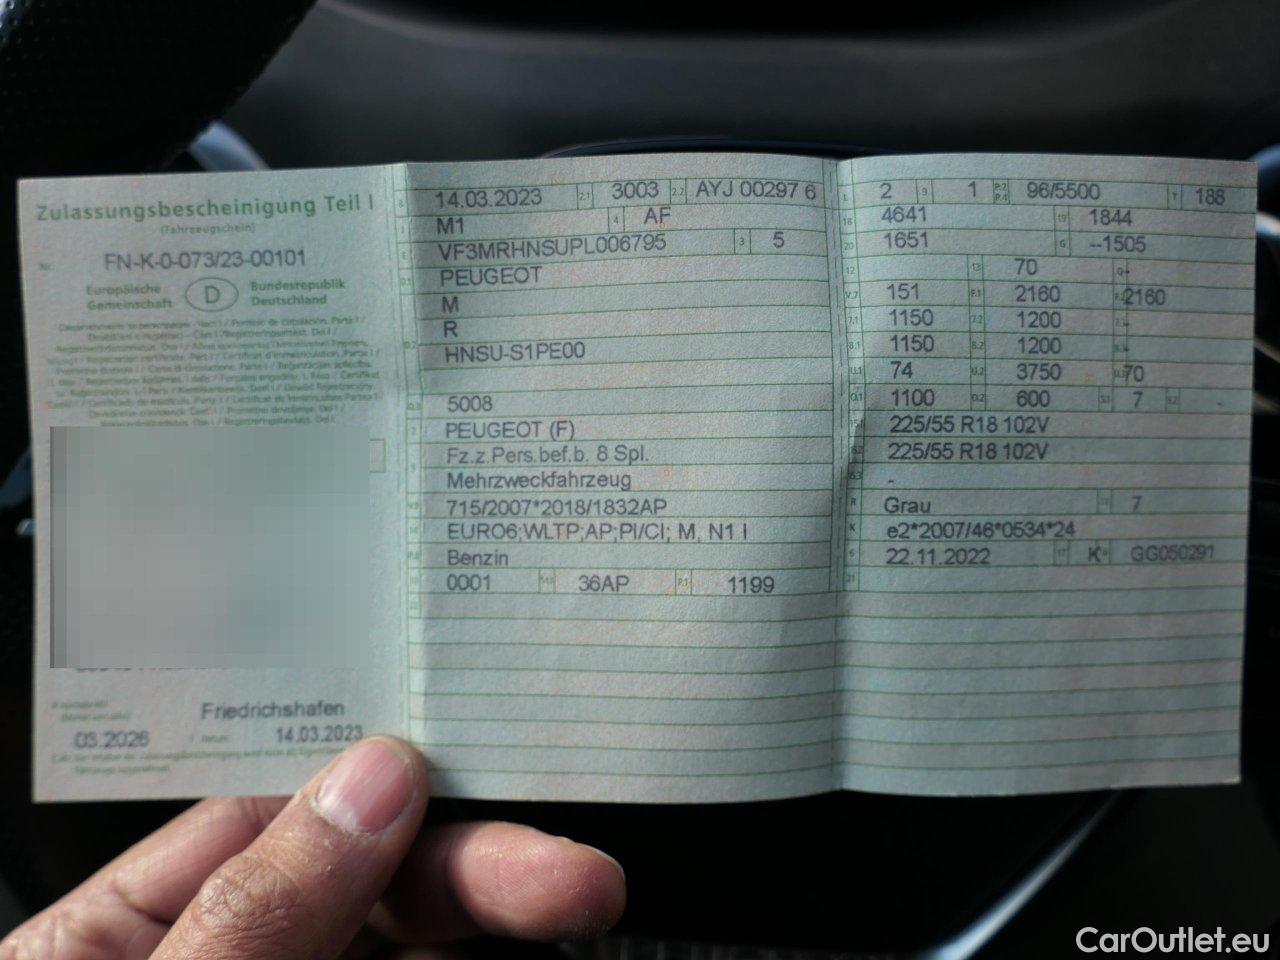 Zulassungsbescheinigung Teil I
(Fahrzeugschein)
Nr. FN-K-0-073/23-00101
Europäische Gemeinschaft
D
Bundesrepublik Deutschland
Friedrichshafen
03.2026
Datum 14.03.2023
B 14.03.2023 2.1 3003 2.2 AYJ 00297 6
J M1 4 AF
E VF3MRHNSUPL006795 3 5
D.1 PEUGEOT
M
D.2 R
HNSU-S1PE00
D.3 5008
2 PEUGEOT (F)
5 Fz.z.Pers.bef.b. 8 Spl.
Mehrzweckfahrzeug
V.9 715/2007*2018/1832AP
14 EURO6;WLTP;AP;PI/CI; M, N1 I
P.3 Benzin
10 0001 14.1 36AP P.1 1199
22
L 2 9 1 P.2 P.4 96/5500 T 188
18 4641 19 1844
20 1651 G --1505
12 13 70 Q -
V.7 151 F.1 2160 F.2 2160
7.1 1150 7.2 1200 7.3 -
8.1 1150 8.2 1200 8.3 -
U.1 74 U.2 3750 U.3 70
O.1 1100 O.2 600 S.1 7 S.2 -
15.1 225/55 R18 102V
15.2 225/55 R18 102V
15.3 -
R Grau 11 7
K e2*2007/46*0534*24
6 22.11.2022 17 K 16 GG050291
21
CarOutlet.eu